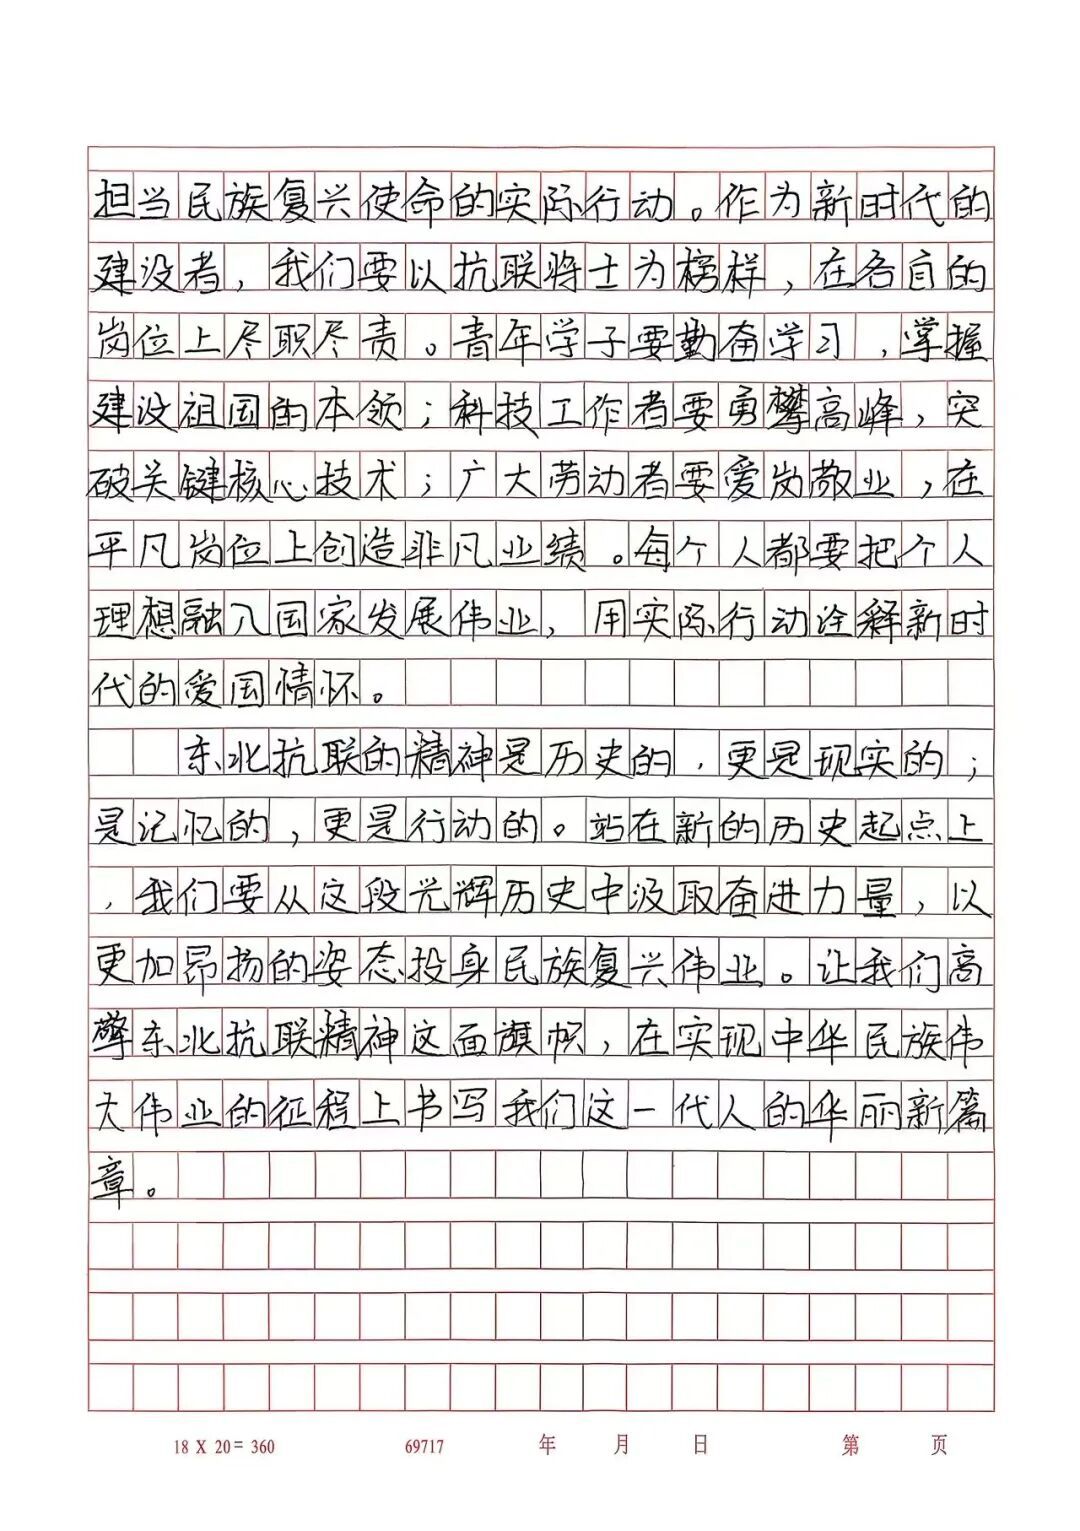 担当民族复兴使命的实际行动。作为新时代的
建设者，我们要以抗联将士为榜样，在各自的
岗位上尽职尽责。青年学子要勤奋学习，掌握
建设祖国的本领；科技工作者要勇攀高峰，突
破关键核心技术；广大劳动者要爱岗敬业，在
平凡岗位上创造非凡业绩。每个人都要把个人
理想融入国家发展伟业，用实际行动诠释新时
代的爱国情怀。
东北抗联的精神是历史的，更是现实的；
是记忆的，更是行动的。站在新的历史起点上
，我们要从这段光辉历史中汲取奋进力量，以
更加昂扬的姿态投身民族复兴伟业。让我们高
擎东北抗联精神这面旗帜，在实现中华民族伟
大伟业的征程上书写我们这一代人的华丽新篇
章。
18 X 20 = 360 69717 年 月 日 第 页